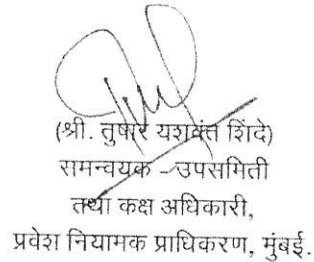 (श्री. तुषार यशवंत शिंदे)
समन्वयक – उपसमिती
तथा कक्ष अधिकारी,
प्रवेश नियामक प्राधिकरण, मुंबई.